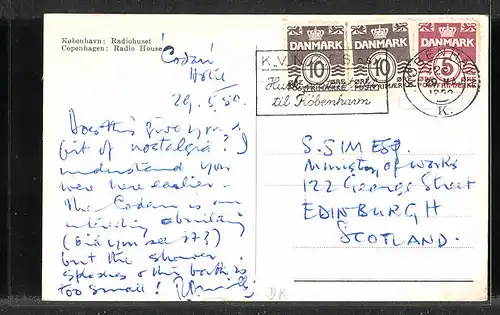 København: Radiohuset
Copenhagen: Radio House
Codan
Hotel
29.5.50.
Does this give you a
bit of nostalgia? I
understand you
were here earlier.
The Codan is an
interesting building
(Did you see it?)
but the shower
splashes & the bath is
too small!
DANMARK DANMARK DANMARK
10 10 5
K.V.I.N.
til København
KØBENHAVN
K.
S. SIM ESQ.
Ministry of Works
122 George Street
EDINBURGH
SCOTLAND.
DK